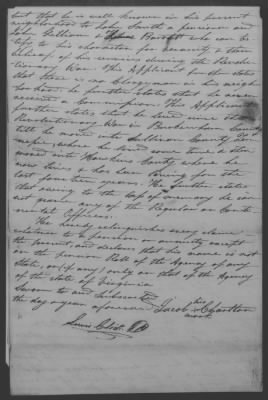 but that he is well known in his present
neighborhood to John Smith a pensioner and
John Gilliam & Barrett who can be
to his character for veracity & their
belief of his services during the Revolu-
tionary War. This Applicant further states
that there is no Clergyman in his neigh-
borhood. he further states that he never
received a Commission. The Applicant
further states that he lived since the
Revolutionary War in Buckingham County
till he moved into Sullivan County
where he lived
moved into Hawkins County where he
now lives & has been living for the
last years. He further states
that owing to the loss of memory he can
not name any of the Regular or Conti-
nental Officers.
He hereby relinquishes every claim
whatever to a pension or annuity except
the present, and declares that his name is not
on the pension Roll of the Agency of any
State, or (if any) only on that of the Agency
of the state of Virginia
Sworn to and Subscribed
the day & year aforesaid
his
Jacob x Charlton
mark